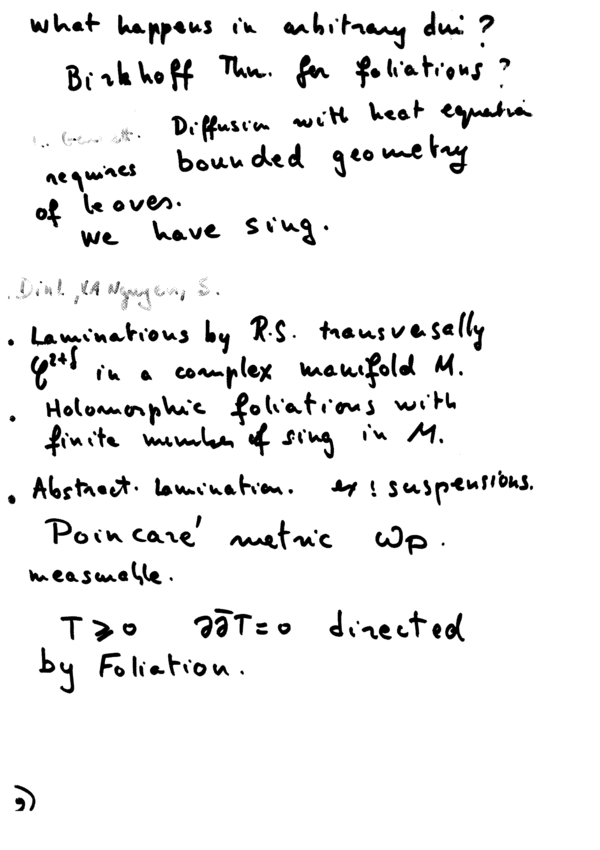 what happens in arbitrary dim ?
Birkhoff Thm. for foliations ?
Diffusion with heat equation
requires bounded geometry
of leaves.
we have sing.
Dinh, VA Nguyen, S.
. Laminations by R.S. transversally
𝒞²⁺ᵟ in a complex manifold M.
. Holomorphic foliations with
finite number of sing in M.
. Abstract. lamination. ex : suspensions.
Poincaré metric ωp.
measurable.
T ⩾ 0 ∂∂̄T = 0 directed
by Foliation.